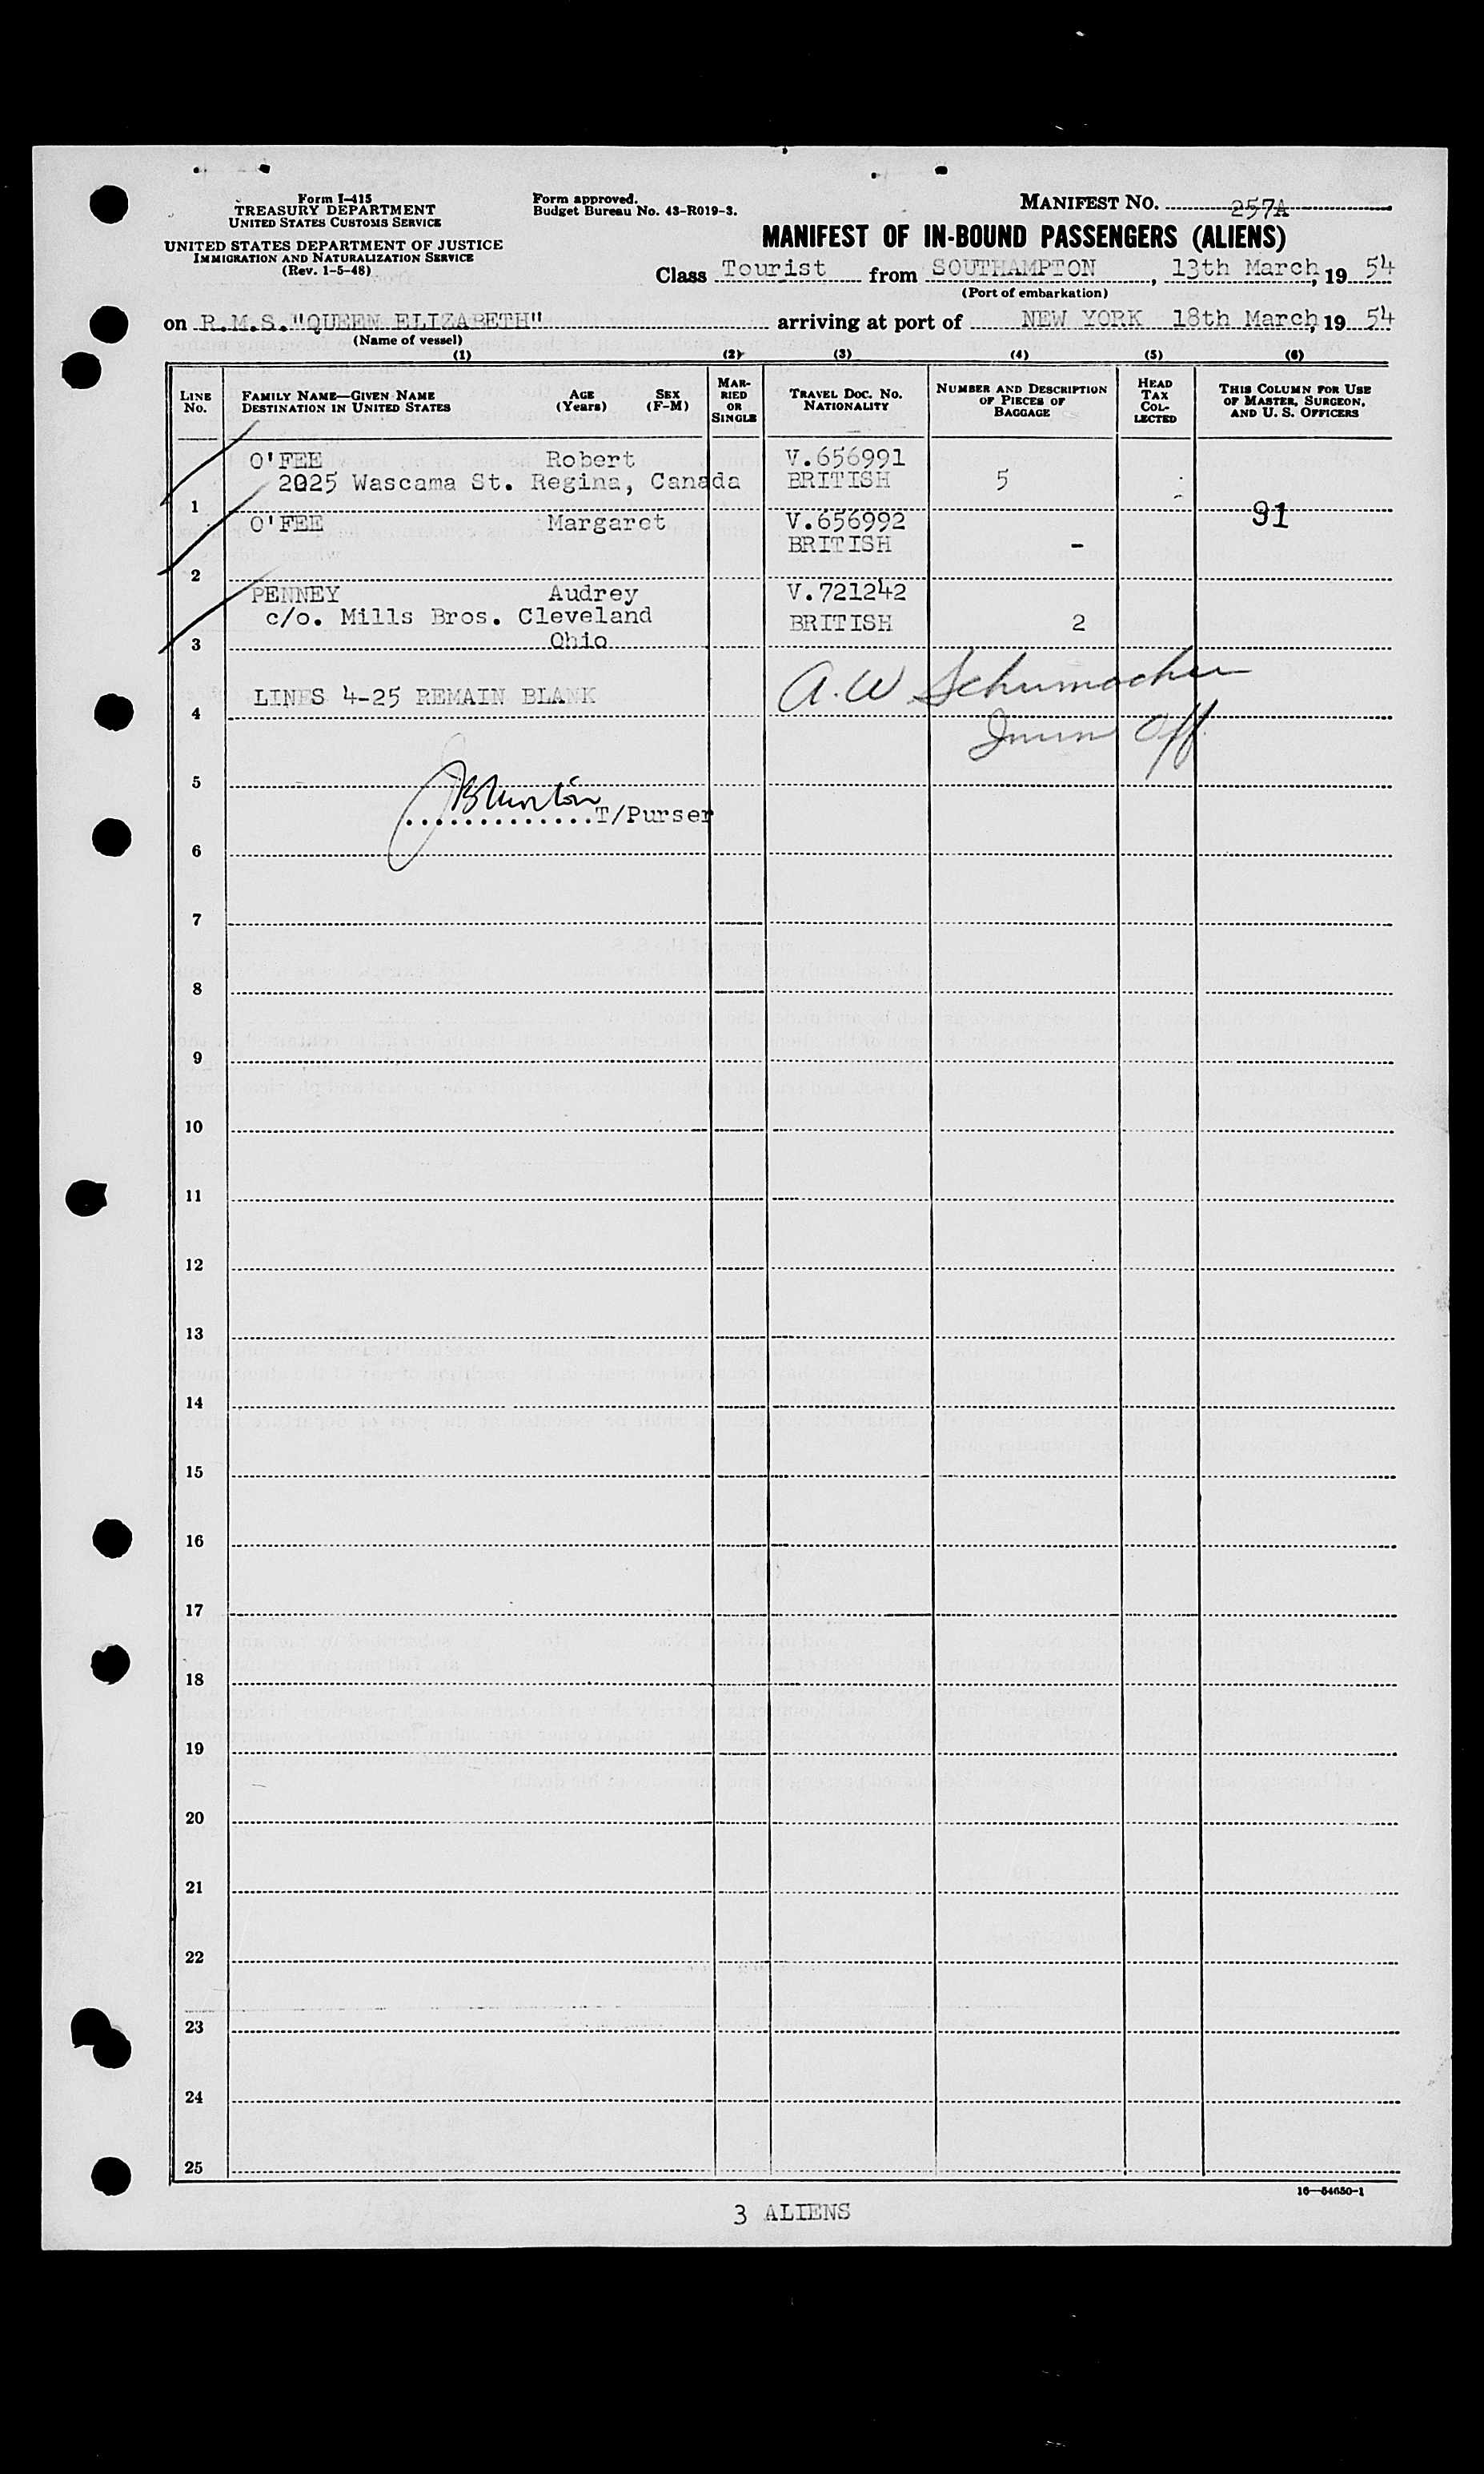 Form I-415
TREASURY DEPARTMENT
UNITED STATES CUSTOMS SERVICE
UNITED STATES DEPARTMENT OF JUSTICE
IMMIGRATION AND NATURALIZATION SERVICE
(Rev. 1-5-48)
Form approved.
Budget Bureau No. 43-R019-3.
MANIFEST NO. 257A
MANIFEST OF IN-BOUND PASSENGERS (ALIENS)
Class Tourist from SOUTHAMPTON, 13th March, 19 54
(Port of embarkation)
on R.M.S."QUEEN ELIZABETH" arriving at port of NEW YORK 18th March, 19 54
(Name of vessel)
(1) (2) (3) (4) (5) (6)
LINE No.
FAMILY NAME—GIVEN NAME
DESTINATION IN UNITED STATES
AGE (Years)
SEX (F-M)
MARRIED OR SINGLE
TRAVEL DOC. NO.
NATIONALITY
NUMBER AND DESCRIPTION OF PIECES OF BAGGAGE
HEAD TAX COLLECTED
THIS COLUMN FOR USE OF MASTER, SURGEON, AND U. S. OFFICERS
O'FEE Robert V.656991
2025 Wascama St. Regina, Canada BRITISH 5
1
O'FEE Margaret V.656992 91
BRITISH -
2
PENNEY Audrey V.721242
c/o. Mills Bros. Cleveland BRITISH 2
3 Ohio
LINES 4-25 REMAIN BLANK A. W Schumacher
4
Immn Off.
5
T/Purser
6
7
8
9
10
11
12
13
14
15
16
17
18
19
20
21
22
23
24
25
16—54650-1
3 ALIENS